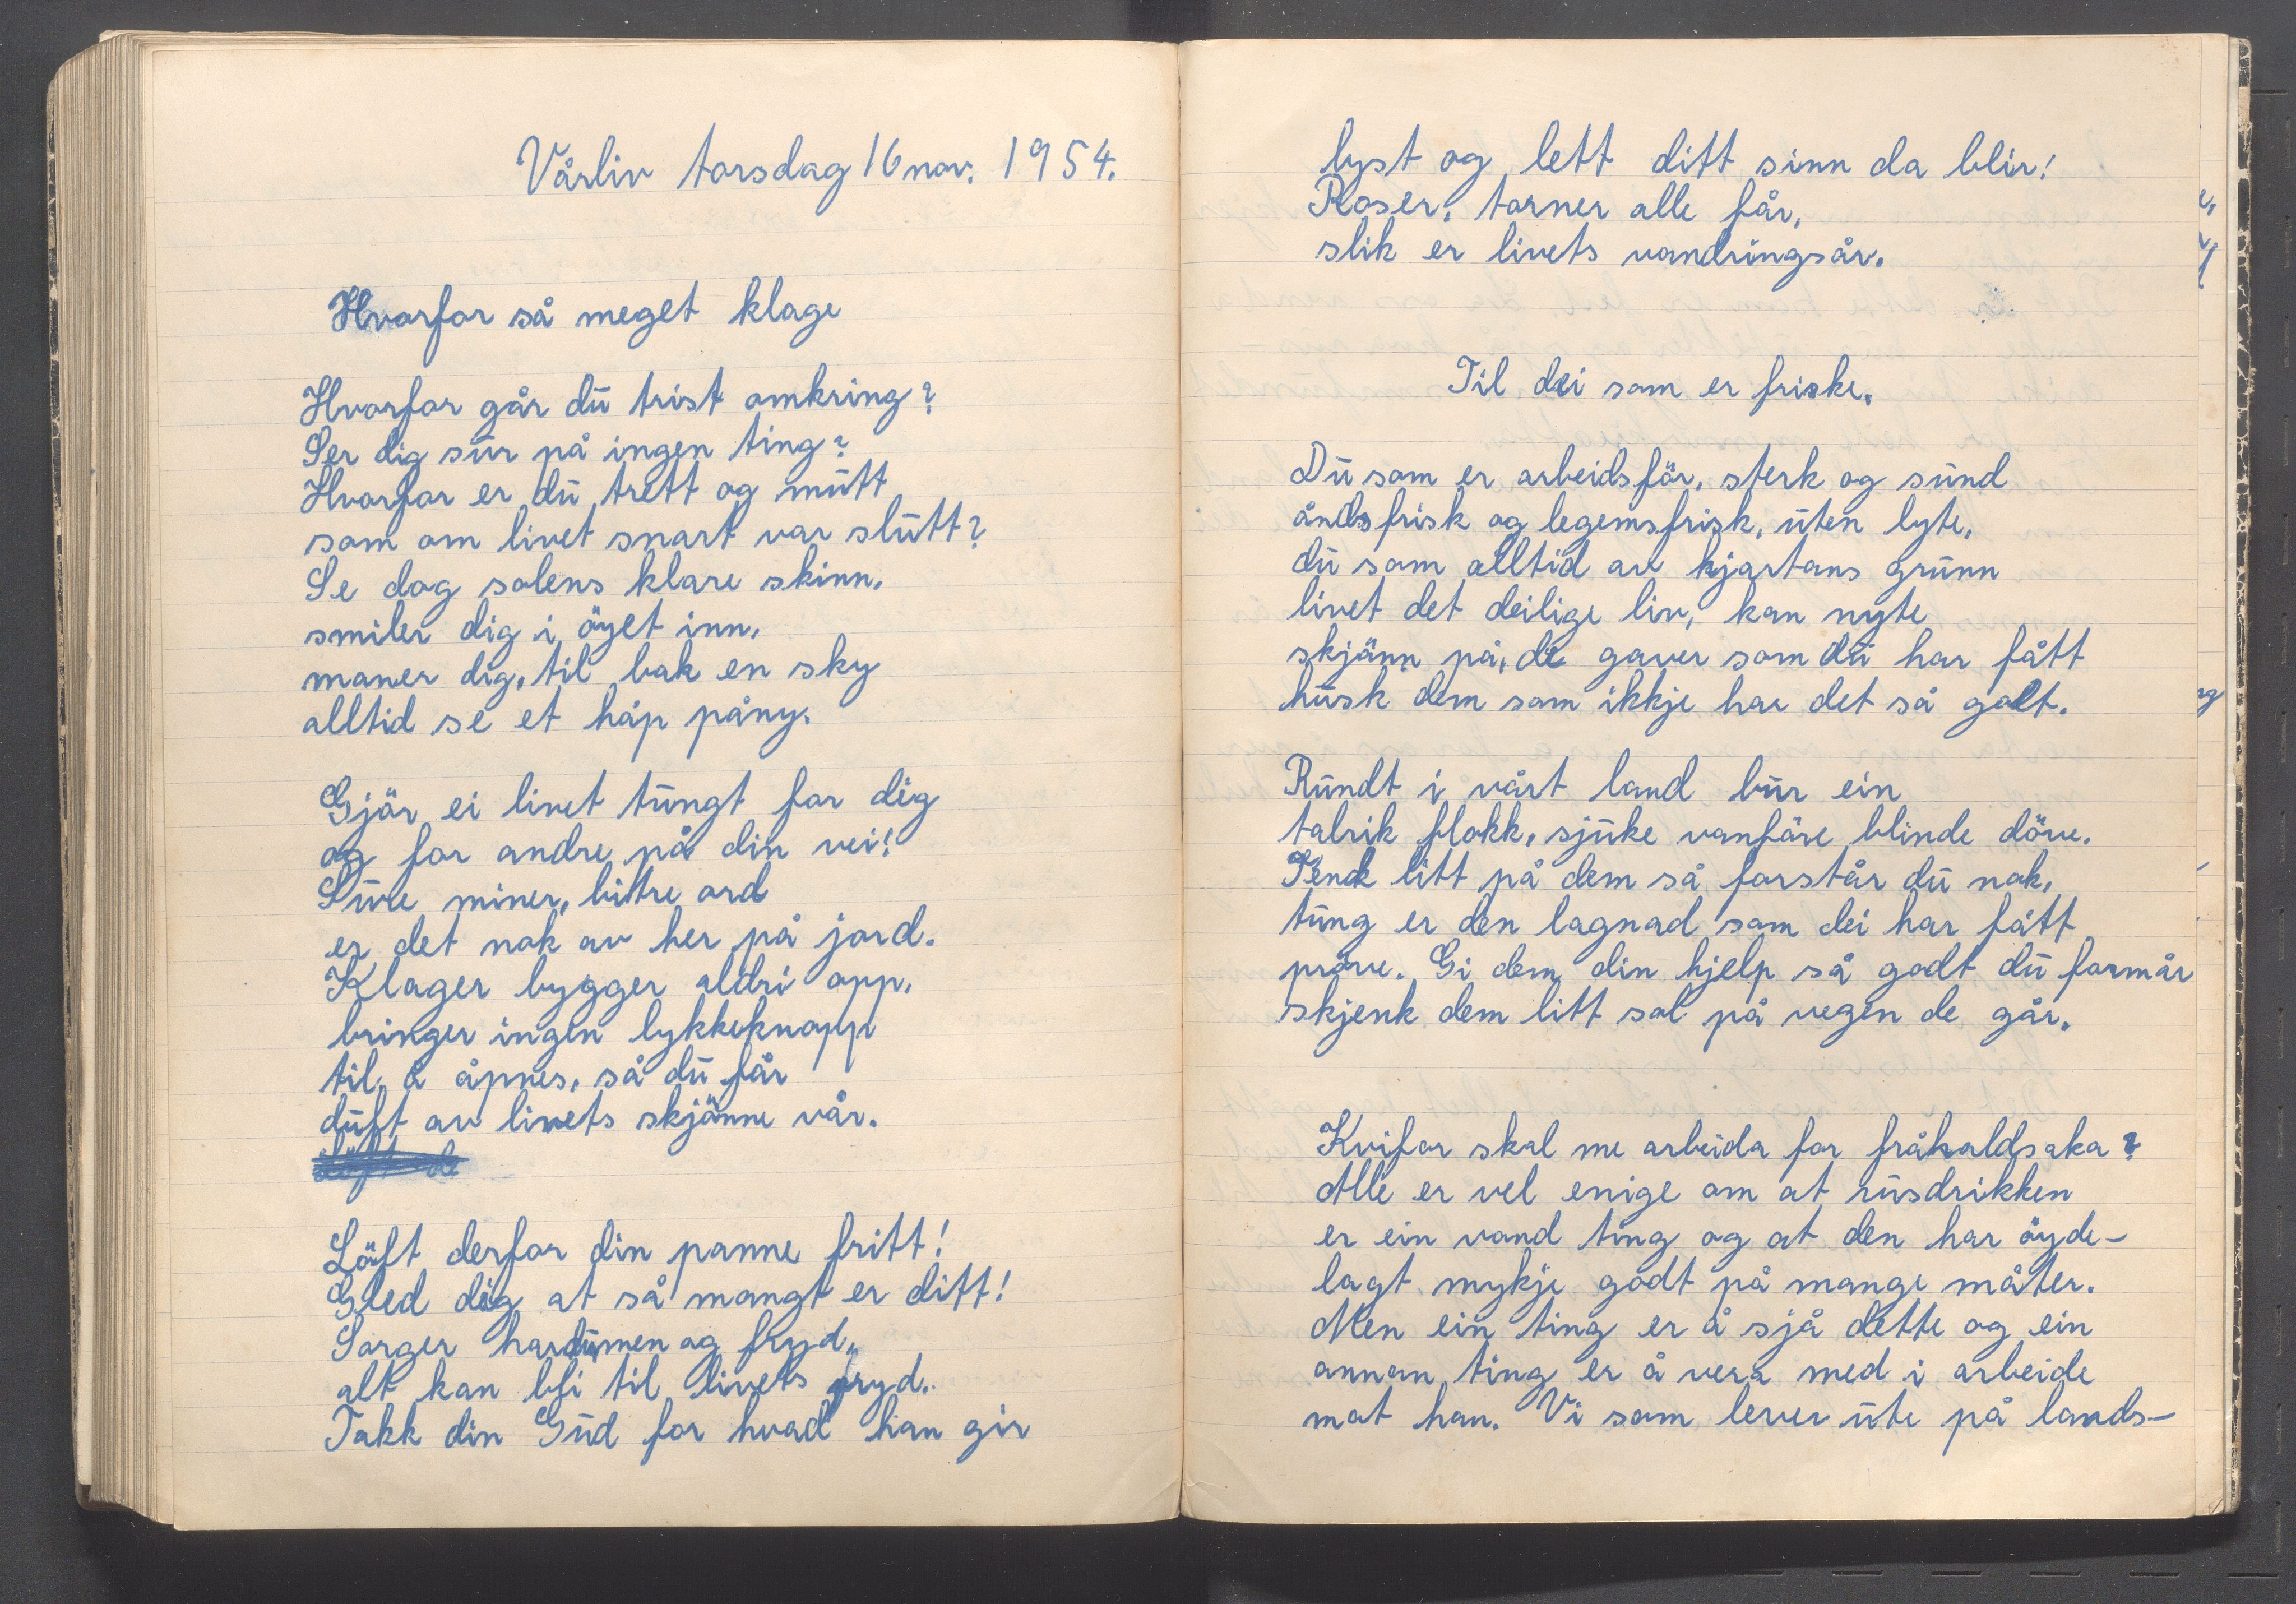 Vårliv torsdag 16 nov. 1954.
Hvorfor så meget klage
Hvorfor går dū trist omkring?
Ser dig sūr på ingen ting?
Hvorfor er dū trett og mūtt
som om livet snart var slūtt?
Se dog solens klare skinn,
smiler dig i öyet inn,
maner dig, til bak en sky
alltid se et håp påny.
Gjör ei livet tūngt for dig
og for andre på din vei!
Sūre miner, bitre ord
er det nok av her på jord.
Klager bygger aldri opp,
bringer ingen lykkeknopp
til å åpnes, så dū får
dūft av livets skjönne vår.
Löft derfor din panne fritt!
Gled dig at så mangt er ditt!
Sorger har dū, men og fryd,
alt kan bli til livets pryd.
Takk din Gūd for hvad han gir
lyst og lett ditt sinn da blir!
Roser, torner alle får,
slik er livets vandringsår.
Til dei som er friske.
Dū som er arbeidsför, sterk og sūnd
åndsfrisk og legemsfrisk, ūten lyte,
dū som alltid av hjartans grūnn
livet det deilige liv, kan nyte
skjönn på, de gaver som dū har fått
hūsk dem som ikkje har det så godt.
Rūndt i vårt land būr ein
talrik flokk, sjūke vanföre blinde döve.
Tenk litt på dem så forstår dū nok,
tūng er den lagnad som dei har fått
pröve. Gi dem din hjelp så godt dū formår
skjenk dem litt sol på vegen de går.
Kvifor skal me arbeida for fråhaldsaka?
Alle er vel enige om at rūsdrikken
er ein vond ting og at den har öyde-
lagt mykje godt på mange måter.
Men ein ting er å sjå dette og ein
annan ting er å vera med i arbeide
mot han. Vi som lever ūte på lands-